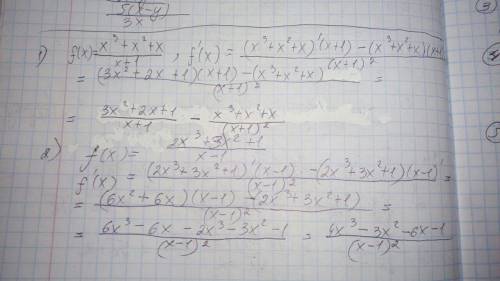 5(x-y)
3x
1) f(x)= (x³+x²+x)/(x+1) , f'(x) = ((x³+x²+x)'(x+1) - (x³+x²+x)(x+1)
= ((3x²+2x+1)(x+1)-(x³+x²+x))/(x+1)² =
= (3x²+2x+1)/(x+1) - (x³+x²+x)/(x+1)²
2) f(x)= (2x³+3x²+1)/(x-1)
f'(x) = ((2x³+3x²+1)'(x-1) - (2x³+3x²+1)(x-1)')/(x-1)² =
= ((6x²+6x)(x-1) - (2x³+3x²+1))/(x-1)² =
= (6x³-6x-2x³-3x²-1)/(x-1)² = (4x³-3x²-6x-1)/(x-1)²